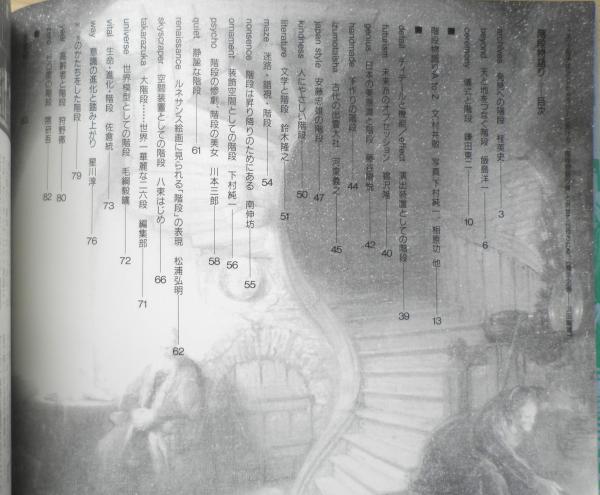 階段物語り 目次
archives 発見への階段 程英史 3
beyond 天と地をつなぐ階段 飯島洋一 6
ceremony 儀式と階段 鎌田東二 10
■
階段物語のA to Z 文 植村共敬 写真 下村純一 相原功 他 13
■
detail ディテールと機能
effect 演出装置としての階段 39
futurism 未来派のオブセッション 鵜沢隆 40
genius 日本の 階段 42
handmade 手作りの階段 44
izumotaisha 古代の出雲大社 45
japan style 安藤忠雄の階段 47
kindness 人にやさしい階段 50
literature 文学と階段 鈴木隆之 51
maze 迷路・錯視・階段 54
nonsense 階段は昇り降りのためにある 南伸坊 55
ornament 装飾空間としての階段 下村純一 56
psycho 階段の惨劇、階段の美女 川本三郎 58
quiet 静謐な階段 61
renaissance ルネサンス絵画に見られる「階段」の表現 松浦弘明 62
skyscraper 空間装置としての階段 八束はじめ 66
takarazuka 大階段……世界一華麗な二六段 編集部 71
universe 世界模型としての階段 毛綱毅曠 72
vital 生命・進化・階段 佐倉統 73
way 意識の進化と踏み上がり 星川淳 76
x Xのかたちをした階段 79
year 高齢者と階段 狩野徹 80
zero ゼロ度の階段 隈研吾 82
■